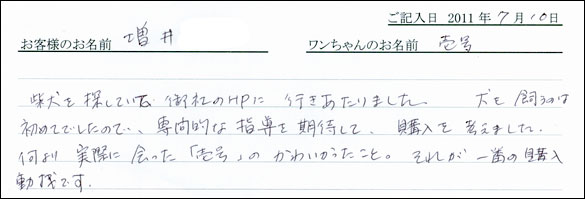 ご記入日 2011年7月10日
お客様のお名前 増井 ワンちゃんのお名前 壱号
柴犬を探していて 御社のHPに 行きあたりました。 犬を飼うのは
初めてでしたので、専門的な指導を期待して、購入を考えました。
何より 実際に会った「壱号」の かわいかったこと。それが 一番の購入
動機です。